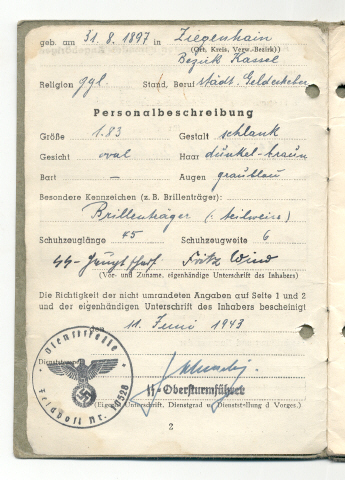 geb. am 31.8.1897 in Ziegenhain
(Ort, Kreis, Verw.-Bezirk)
Bezirk Kassel
Religion ggl. Stand, Beruf städt.
Personalbeschreibung
Größe 1.83 Gestalt schlank
Gesicht oval Haar dunkel-braun
Bart — Augen graublau
Besondere Kennzeichen (z. B. Brillenträger):
Brillenträger (: teilweise)
Schuhzeuglänge 45 Schuhzeugweite 6
SS- Fritz Wind
(Vor- und Zuname, eigenhändige Unterschrift des Inhabers)
Die Richtigkeit der nicht umrandeten Angaben auf Seite 1 und 2
und der eigenhändigen Unterschrift des Inhabers bescheinigt
den 11. Juni 1943
Dienststelle
Feldpost Nr.
SS-Obersturmführer
(Eigenh. Unterschrift, Dienstgrad u. Dienststellung d. Vorges.)
2